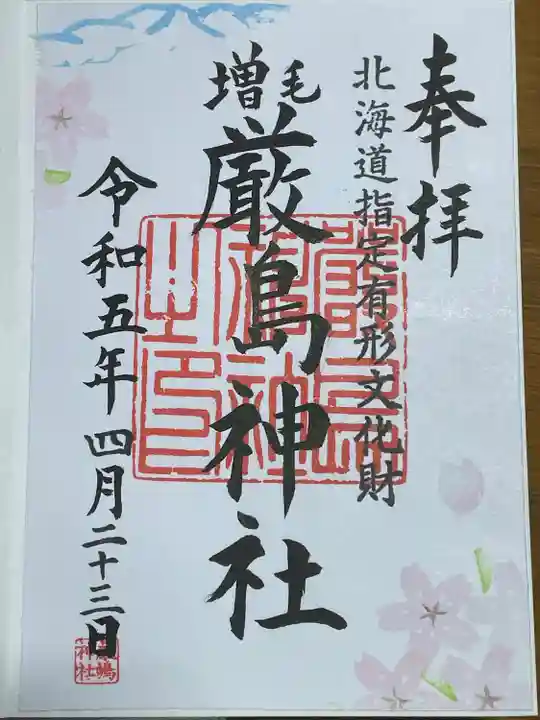 奉拝
北海道指定有形文化財
増毛
厳島神社
令和五年四月二十三日